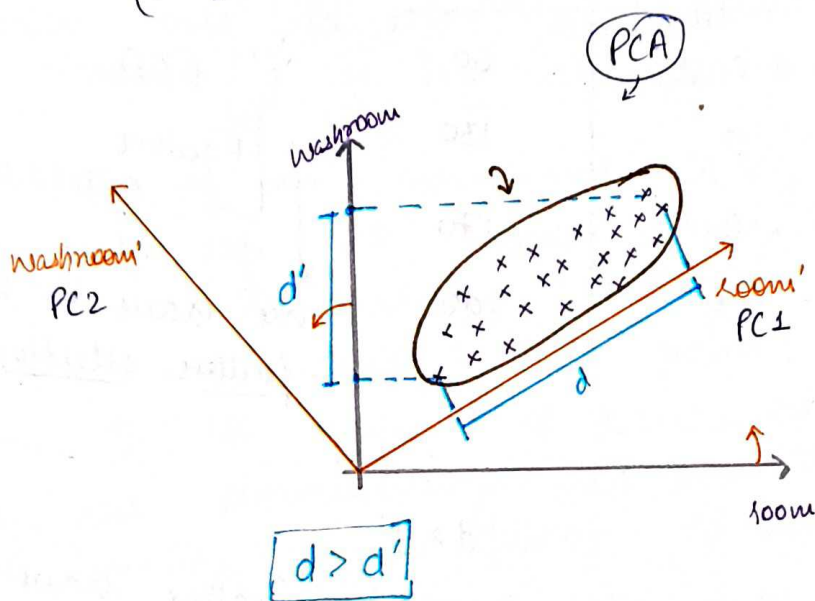 PCA
washroom
washroom'
PC2
d'
room'
PC1
d
room
d > d'